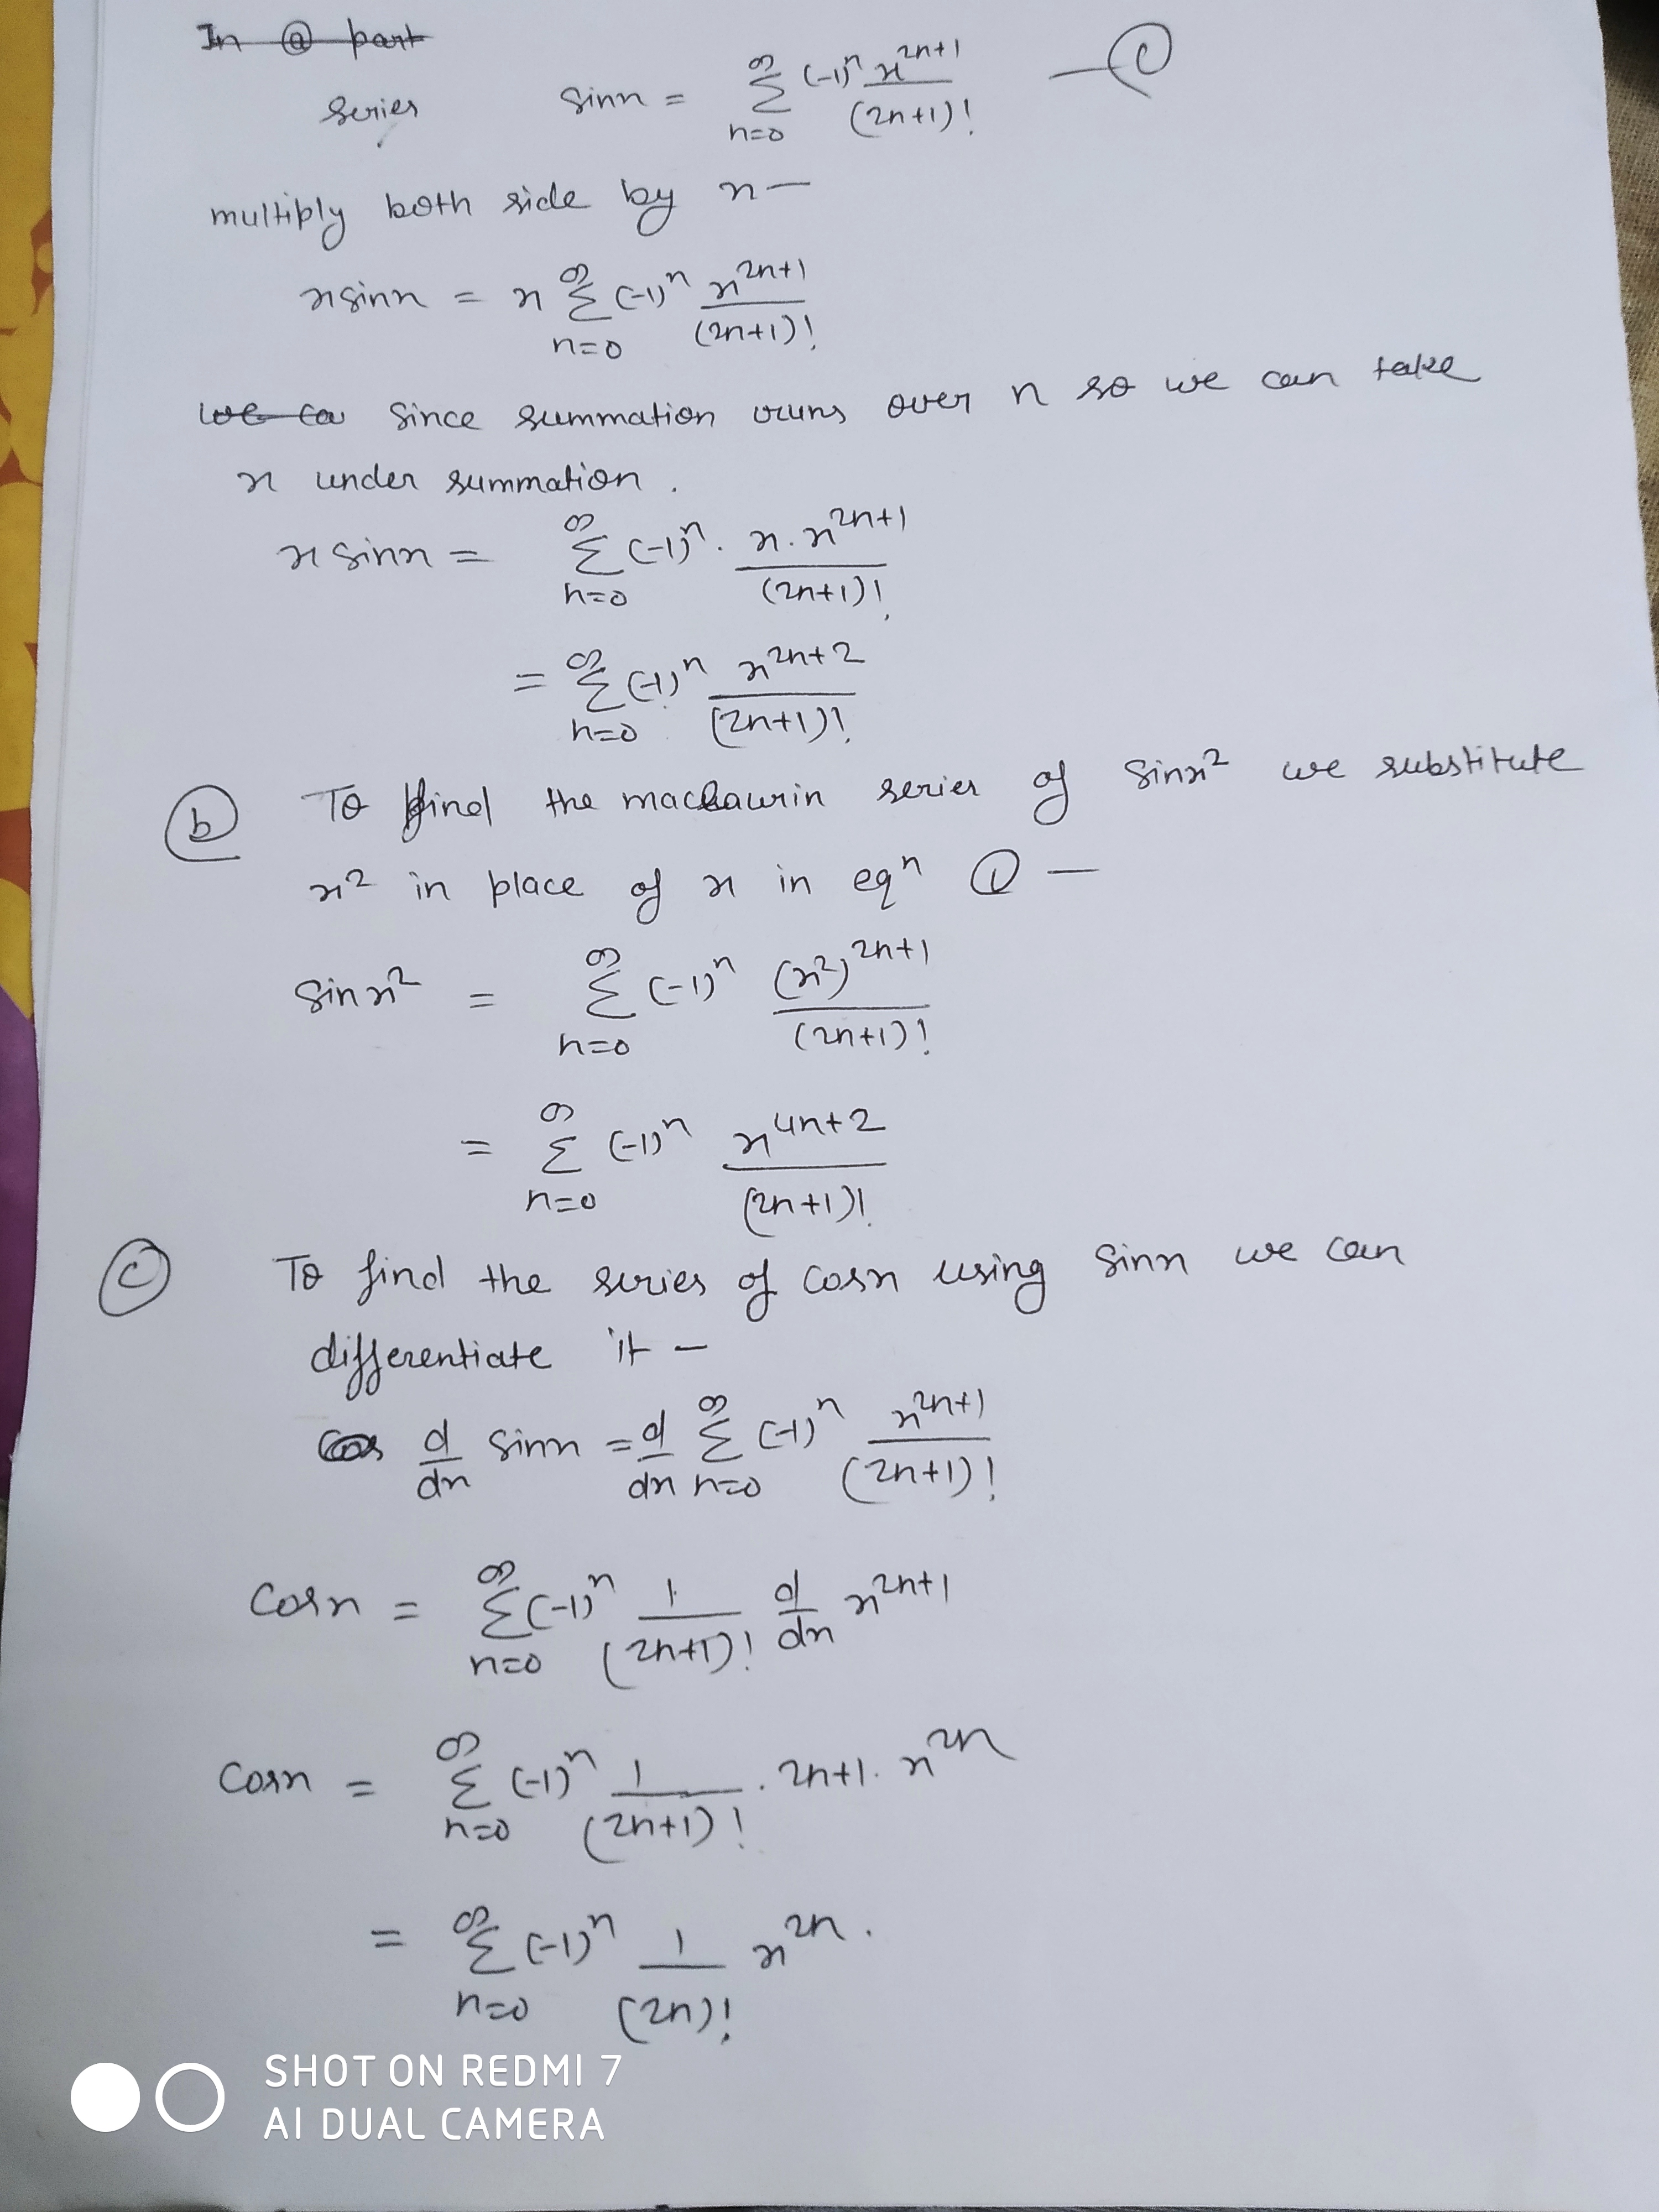 In ⓐ part
series sinx = ∑_{n=0}^{∞} (-1)^n x^{2n+1}/(2n+1)! — ①
multiply both side by x —
x sinx = x ∑_{n=0}^{∞} (-1)^n x^{2n+1}/(2n+1)!
we ca since summation runs over n so we can take
x under summation.
x sinx = ∑_{n=0}^{∞} (-1)^n · x·x^{2n+1}/(2n+1)!
= ∑_{n=0}^{∞} (-1)^n x^{2n+2}/(2n+1)!
ⓑ To find the maclaurin series of sinx² we substitute
x² in place of x in eqⁿ ① —
sinx² = ∑_{n=0}^{∞} (-1)^n (x²)^{2n+1}/(2n+1)!
= ∑_{n=0}^{∞} (-1)^n x^{4n+2}/(2n+1)!
ⓒ To find the series of cosx using sinx we can
differentiate it —
cos d/dx sinx = d/dx ∑_{n=0}^{∞} (-1)^n x^{2n+1}/(2n+1)!
cosx = ∑_{n=0}^{∞} (-1)^n 1/(2n+1)! d/dx x^{2n+1}
cosx = ∑_{n=0}^{∞} (-1)^n 1/(2n+1)! · 2n+1 · x^{2n}
= ∑_{n=0}^{∞} (-1)^n 1/(2n)! x^{2n}.
SHOT ON REDMI 7
AI DUAL CAMERA